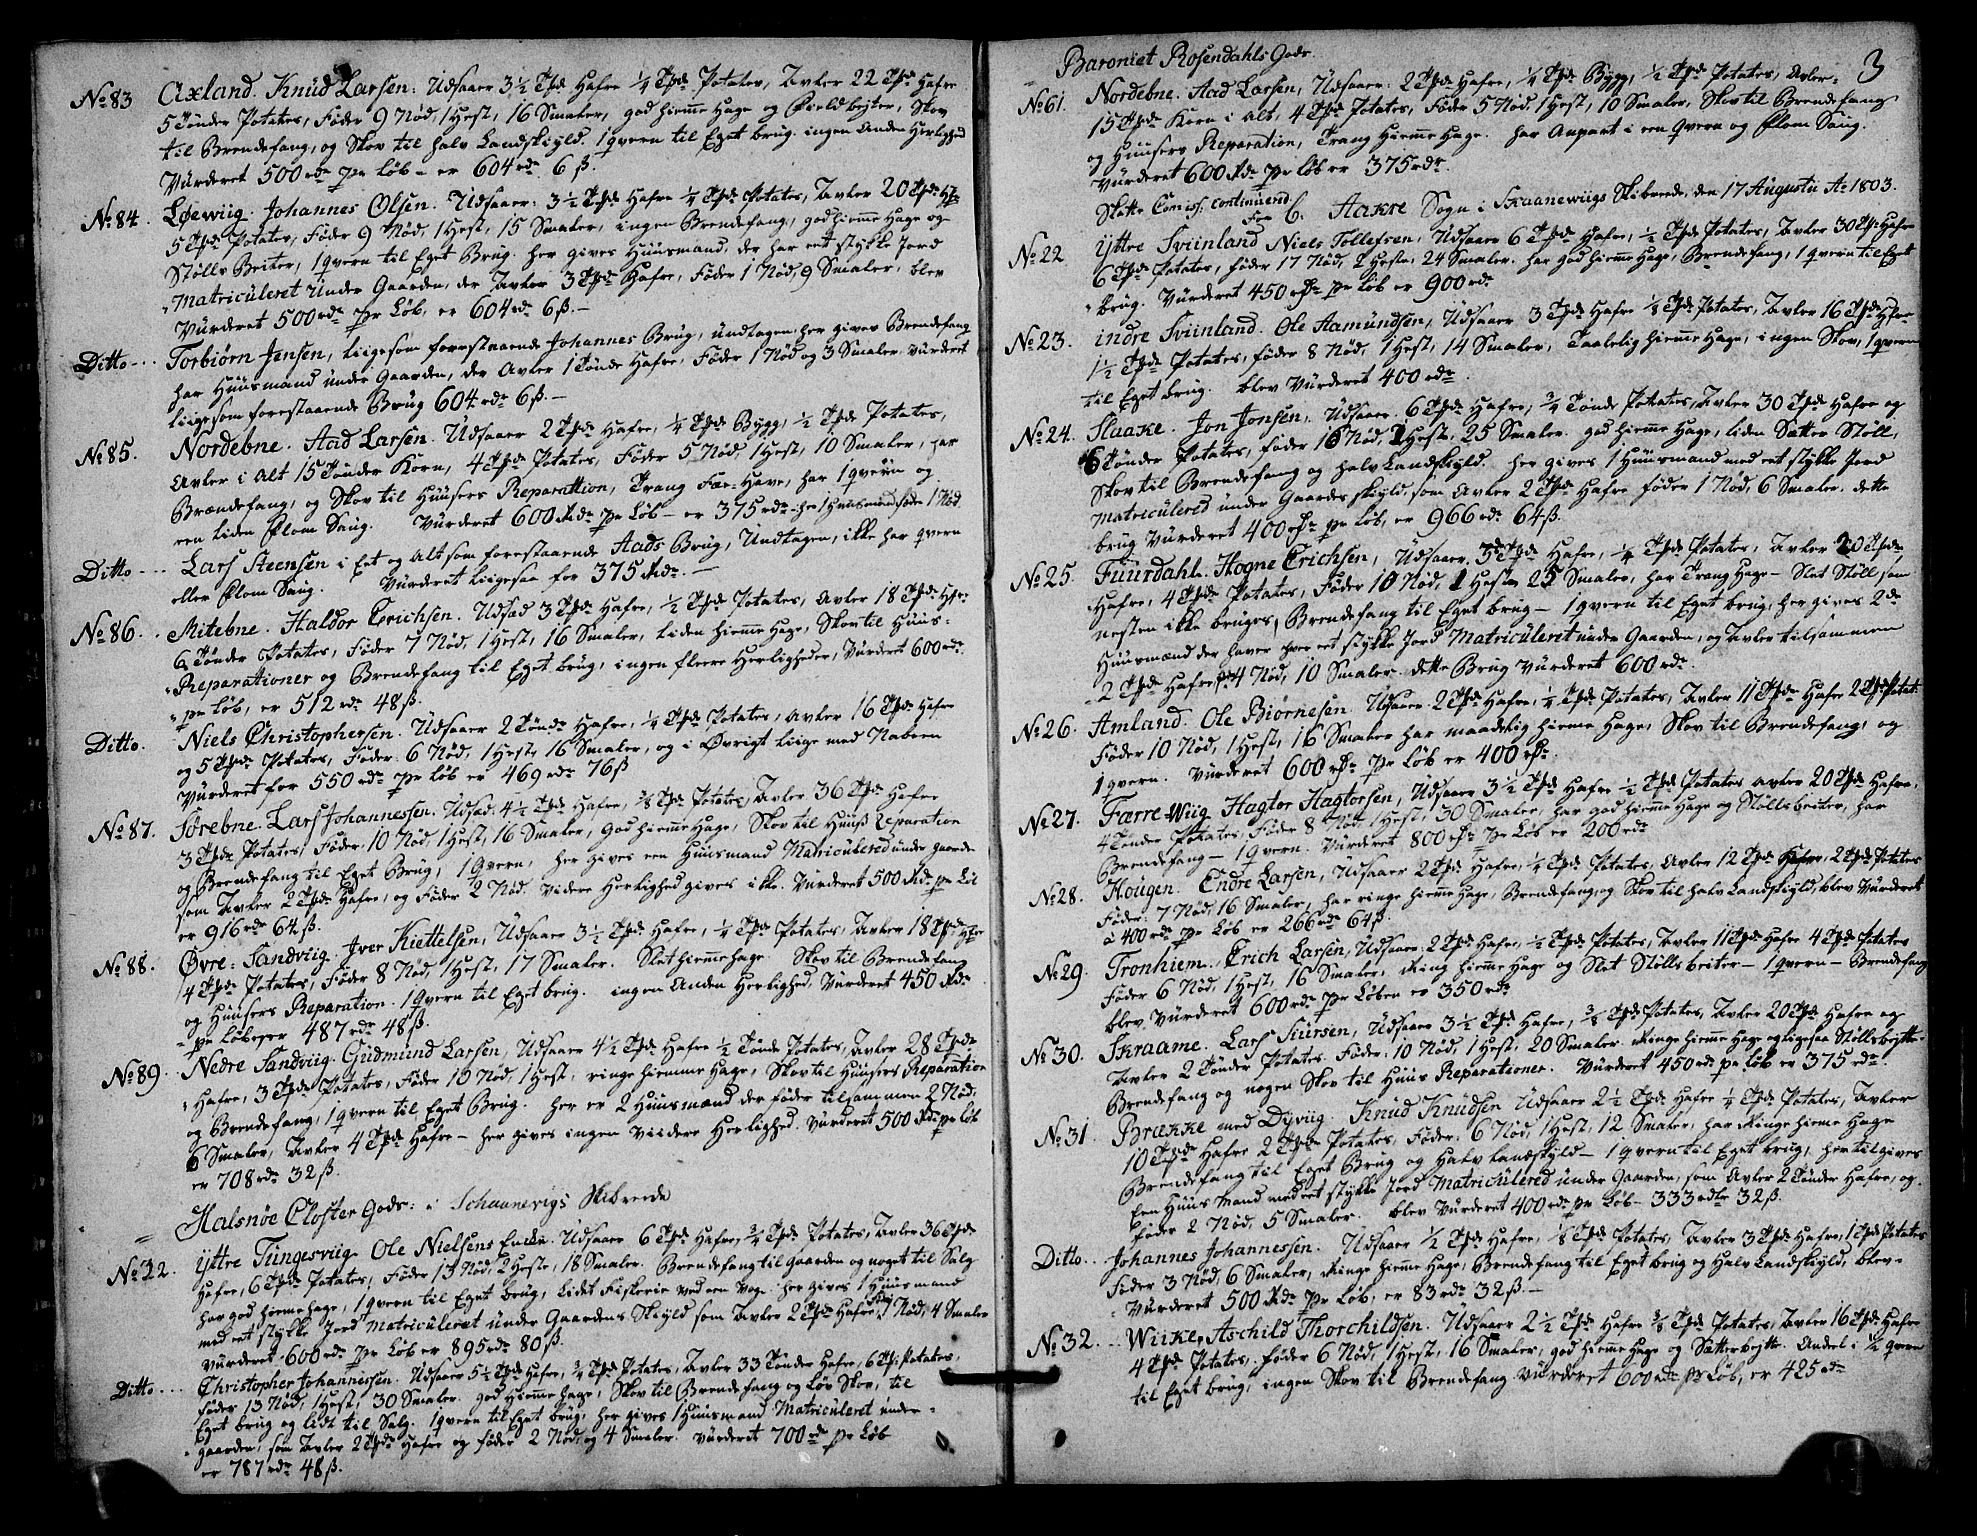 No 83 Axland. Knud Larsen. Udsaaer 3½ Tdr Hafre ¼ Tdr Potates, Avler 22 Tdr Hafre
5 Tønder Potates, føder 9 Nød, 1 Hest, 16 Smaler, god hiemme Hage og Skov
til Brendefang, og Skov til halv Landskyld. 1 qvern til Eget brug. ingen Anden Herlighed
Vurderet 500 rdr pr Løb – er 604 rdr 6 ß.
No 84. Løewiig. Johannes Olsen. Udsaaer: 3½ Tdr Hafre ¼ Tdr Potates, Avler 20 Tdr Hfr
5 Tdr Potates, føder 9 Nød, 1 Hest, 15 Smaler, ingen Brendefang, god hiemme Hage og
Stølls Beiter, 1 qvern til Eget Brug. her gives Huusmand, der har et stykke Jord
Matriculeret under Gaarden, der Avler 3 Tdr Hafre, føder 1 Nød, 9 Smaler, blev
Vurderet 500 rdr pr Løb, er 604 rdr 6 ß. –
Ditto – – – Torbiørn Jensen, liigesom forestaaende Johannes Brug, undtagen, her gives Brendefang
har Huusmand under Gaarden, der Avler 1 Tønde Hafre, føder 1 Nød og 3 Smaler. Vurderet
liigesom forestaaende Brug 604 rdr 6 ß. –
No 85. Nordebne. Aad Larsen. Udsaaer 2 Tdr Hafre, ¼ Tdr Bygg, ½ Tdr Potates,
Avler i Alt 15 Tønder Korn, 4 Tdr Potates, føder 5 Nød, 1 Hest, 10 Smaler, har
Brændefang, og Skov til Huusers Reparattion, Trang Fæ-Have, har 1 qvern og
een liden Flom Saug. Vurderet 600 Rdr pr Løb – er 375 rdr – har 1 Huusmand føder 1 Nød
Ditto – – – Lars Steensen i Eet og Alt som forestaaende Aads Brug, Undtagen, ikke har qvern
eller Flom Saug. Vurderet liigesaa for 375 Rdr –
No 86. Mitebne. Haldor Erichsen. Udsæd 3 Tdr Hafre, ½ Tdr Potates, Avler 18 Tdr Hfr:
6 Tønder Potates, føder 7 Nød, 1 Hest, 16 Smaler, liden hiemme Hage, Skov til Huus-
Reparationer og Brendefang til Eget brug, ingen fleere Herligheder, Vurderet 600 rdr.
pr Løb, er 512 rdr 48 ß.
Ditto. Niels Christophersen. Udsaaer 2 Tønde Hafre, ¼ Tdr Potates, Avler 16 Tdr Hafre
og 5 Tdr Potates, føder 6 Nød, 1 Hest, 16 Smaler, og i Øvrigt liige med Naboen
Vurderet for 550 rdr pr Løb er 469 rdr 76 ß
No 87. Sørebne. Lars Johannessen. Udsæd: 4½ Tdr Hafre, ⅜ Tdr Potates, Avler 36 Tdr Hafre
3 Tdr Potates, føder 10 Nød, 1 Hest, 16 Smaler, God hiemme Hage, Skov til Huus Reparation
og Brendefang til Eget Brug, 1 Qvern, her gives een Huusmand Matriculered under gaarden
som Avler 2 Tdr Hafre, og føder 2 Nød. Videre Herlighed gives ikke. Vurderet 500 Rdr pr Løb
er 916 rdr 64 ß.
No 88. Øvre: Sandviig. Iver Kiettelsen, Udsaaer 3½ Tdr Hafre, ¼ Tdr Potates, Avler 18 Tdr Hfre
4 Tdr Potates, føder 8 Nød, 1 Hest, 17 Smaler. Slet hiemme hage. Skov til Brendefang
og Huusers Reparation. 1 qvern til Eget brug. ingen Anden Herlighed, Vurderet 450 Rdr
pr Løb, er 487 rdr 48 ß.
No 89. Nedre Sandviig. Gudmund Larsen, Udsaaer 4½ Tdr Hafre ½ Tønde Potates, Avler 28 Tdr
Hafre, 3 Tdr Potates, føder 10 Nød, 1 Hest, ringe hiemme Hage, Skov til Huusers Reparation
og Brendefang, 1 qvern til Eget Brug. her er 2 Huusmænd der føder tilsammen 2 Nød,
6 Smaler, Avler 4 Tdr Hafre – her gives ingen Viidere Herlighed. Vurderet 500 Rdr pr Løb
er 708 rdr 32 ß.
Halsnøe Closter Gods: i Schaanevigs Skibrede
No 32. Yttre Tungesviig. Ole Nielsens Encke. Udsaaer 6 Tdr Hafre, ¾ Tdr Potates, Avler 36 Tdr
Hafre, 6 Tdr Potates, føder 13 Nød, 2 Heste, 18 Smaler. Brendefang til Gaarden og noget til Salg
har god hiemme hage, 1 qvern til Eget brug, lidet Fiskerie her gives 1 Huusmand
med eet stykke Jord Matriculeret under Gaardens Skyld som Avler 2 Tdr Hafre, 1 Nød, 4 Smaler
vurderet 600 rdr pr Løb er 895 rdr 80 ß.
Ditto – – – Christopher Johannessen. Udsaaer 5½ Tdr Hafre, ¾ Tdr Potates, Avler 33 Tønder Hafre, 6 Tdr Potates,
føder 13 Nød, 1 Hest, 30 Smaler. god hiemme hage, Skov til Brendefang og Løv Skov, til
Eget brug og lidt til Salg. 1 qvern til Eget brug, her gives 1 Huusmand Matriculeret under-
gaarden, som Avler 2 Tdr Hafre og føder 2 Nød, og 4 Smaler. vurderet 700 rdr pr Løb
er 787 rdr 48 ß.
Baroniet Rosendahls Gods. 3
No 61. Nordebne. Aad Larsen, Udsaaer: 2 Tdr Hafre, ¼ Tdr Bygg, ½ Tdr Potates, Avler-
15 Tdr Korn i Alt, 4 Tdr Potates, føder 5 Nød, 1 Hest, 10 Smaler, Skov til Brendefang
og Huusers Reparation, Trang hiemme Hage. har Anpart i een qvern og Flom Saug.
Vurderet 600 Rdr pr Løb er 375 rdr.
Skatte Comiss: continuered For C. Aakre Sogn i Skaanewiigs Skibrede, den 17 Augustii Ao 1803.
No 22 Yttre Sviinland Niels Tollefsen, Udsaaer 6 Tdr Hafre, ½ Tdr Potates, Avler 30 Tdr Hafre
6 Tdr Potates, føder 17 Nød, 2 Heste, 24 Smaler. har god hiemme Hage, Brendefang, 1 qvern til Eget
brug. Vurderet 450 rdr pr Løb er 900 rdr
No 23. indre Sviinland. Ole Aamundsen, Udsaaer 3 Tdr Hafre ¼ Tdr Potates, Avler 16 Tdr Hfre
1½ Tdr Potates, føder 8 Nød, 1 Hest, 14 Smaler, Taalelig hiemme Hage, ingen Skov, 1 qvern
til Eget brug. blev Vurderet 400 rdr
No 24. Slaake. Jon Jonsen, Udsaaer 6 Tdr Hafre, ¾ Tønde Potates, Avler 30 Tdr Hafre og
6 Tønder Potates, føder 16 Nød, 2 Heste, 25 Smaler. god hiemme Hage, liden Sætter Støll,
Skov til Brendefang og halv Landskyld. her gives 1 Huusmand med eet stykke Jord
Matriculered under Gaardes skyld, som Avler 2 Tdr Hafre føder 1 Nød, 6 Smaler. dette
brug Vurderet 400 rdr pr Løb, er 966 rdr 64 ß.
No 25. Fuurdahl. Hogne Erichsen, Udsaaer 3 Tdr Hafre, ¼ Tdr Potates, Avler 20 Tdr
Hafre, 4 Tdr Potates, føder 10 Nød, 1 Hest 25 Smaler, har Trang Hage – Slet Støll som
nesten ikke bruges, Brendefang til Eget brug – 1 qvern til Eget brug, her gives 2de
Huusmænd der haver hver eet stykke Jord Matriculeret under Gaarden, og Avler tilsammen
2 Tdr Hafre, 4 Nød, 10 Smaler. dette Brug Vurderet 600 rdr.
No 26. Amland. Ole Biørnesen. Udsaaer 2 Tdr Hafre, ¼ Tdr Potates, Avler 11 Tdr Hafre 2 Tdr Potat:
føder 10 Nød, 1 Hest, 16 Smaler har maadelig hieme Hage, Skov til Brendefang, og
1 qvern. Vurderet 600 rdr pr Løb er 400 rdr.
No 27. Færre Wiig Hagtor Hagtorsen, Udsaaer 3½ Tdr Hafre ½ Tdr Potates avler 20 Tdr Hafre,
4 Tønder Potates, føder 8 Nød, 1 Hest, 30 Smaler, har god hieme Hage og Stølls beiter, har
Brendefang – 1 qvern. Vurderet 800 rdr pr Løb er 200 rdr
No 28. Hougen. Endre Larsen, Udsaaer 2 Tdr Hafre, ¼ Tdr Potates, Avler 12 Tdr Hafre, 2 Tdr Potates
føder: 7 Nød, 16 Smaler, har ringe hieme Hage, Brendefang, og Skov til halv Landskyld, blev Vurderet
a 400 rdr pr Løb er 266 rdr 64 ß.
No 29. Tronhiem. Erich Larsen, Udsaaer: 2 Tdr Hafre, ½ Tdr Potates, Avler 11 Tdr Hafre 4 Tdr Potates
føder 6 Nød, 1 Hest, 16 Smaler, Ring hieme Hage og Slet Stølls beiter – 1 qvern – Brendefang
blev Vurderet 600 rdr pr Løben er 350 rdr
No 30. Skraame. Lars Siursen, Udsaaer 3½ Tdr Hafre, ⅜ Tdr Potates, Avler 20 Tdr Hafre og
Avler 2 Tønder Potates. føder: 10 Nød, 1 Hest, 20 Smaler. Ringe hieme Hage og ligesaa Støllsbeitter.
Brendefang og nogen Skov til Huus Reparationer. Vurderet 450 rdr pr Løb er 375 rdr.
No 31 Brække med Dyviig. Knud Knudsen Udsaaer 2½ Tdr Hafre ¼ Tdr Potates, Avler
10 Tdr Hafre 2 Tdr Potates, føder: 6 Nød, 1 Hest, 12 Smaler, har Ringe hieme Hage
Brendefang til Eget Brug og Halv Landskyld – 1 qvern til Eget brug, hertil gives
Een Huus Mand med eet stykke Jord Matriculered under Gaarden, som Avler 2 Tønder Hafre, og
føder 2 Nød, 5 Smaler. blev Vurderet 400 rdr pr Løb – 333 rdlr 32 ß.
Ditto – – Johannes Johannessen. Udsaaer ½ Tdr Hafre, ⅛ Tdr Potates, Avler 3 Tdr Hafre, 1 Tdr Potates
føder 3 Nød, 6 Smaler, Ringe hieme Hage, Brendefang til Eget brug og Halv Landskyld, blev-
Vurderet 500 Rdr pr Løb, er 83 rdr 32 ß. –
No 32. Wiike, Aschild Thorchildsen. Udsaaer 2½ Tdr Hafre ⅜ Tdr Potates, Avler 16 Tdr Hafre
4 Tdr Potates, føder 6 Nød, 1 Hest, 16 Smaler, god hieme Hage og Sætterbeite. Andeel i ½ qvern
til Eget brug, ingen Skov til Brendefang. Vurderet 600 rdr pr Løb, er 425 rdr